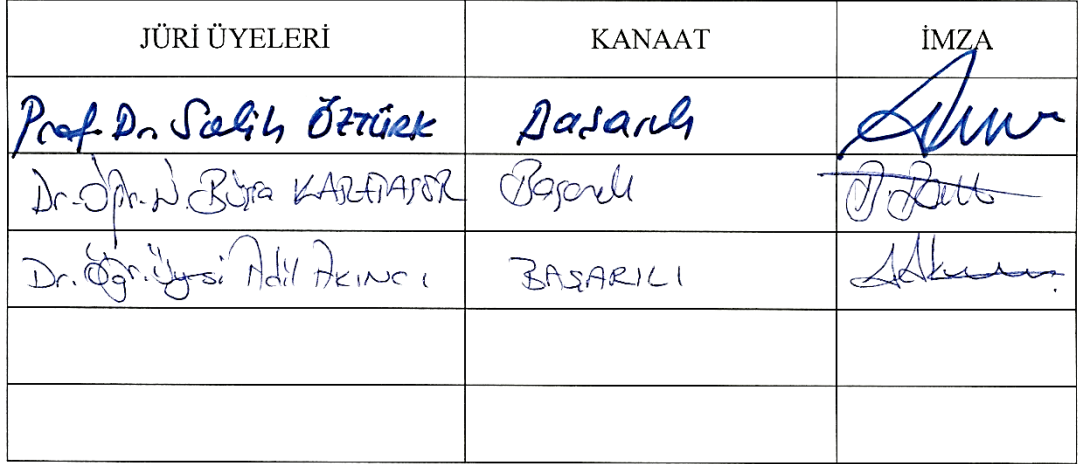 JÜRİ ÜYELERİ KANAAT İMZA
Prof. Dr. Salih ÖZTÜRK Başarılı
Dr. Öğr. Ü. Büşra Başarılı
Dr. Öğr. Üyesi Adil AKINCI BAŞARILI